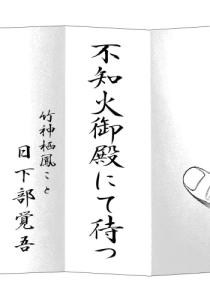 不知火御殿にて待つ
竹神栖鳳こと
日下部覚吾